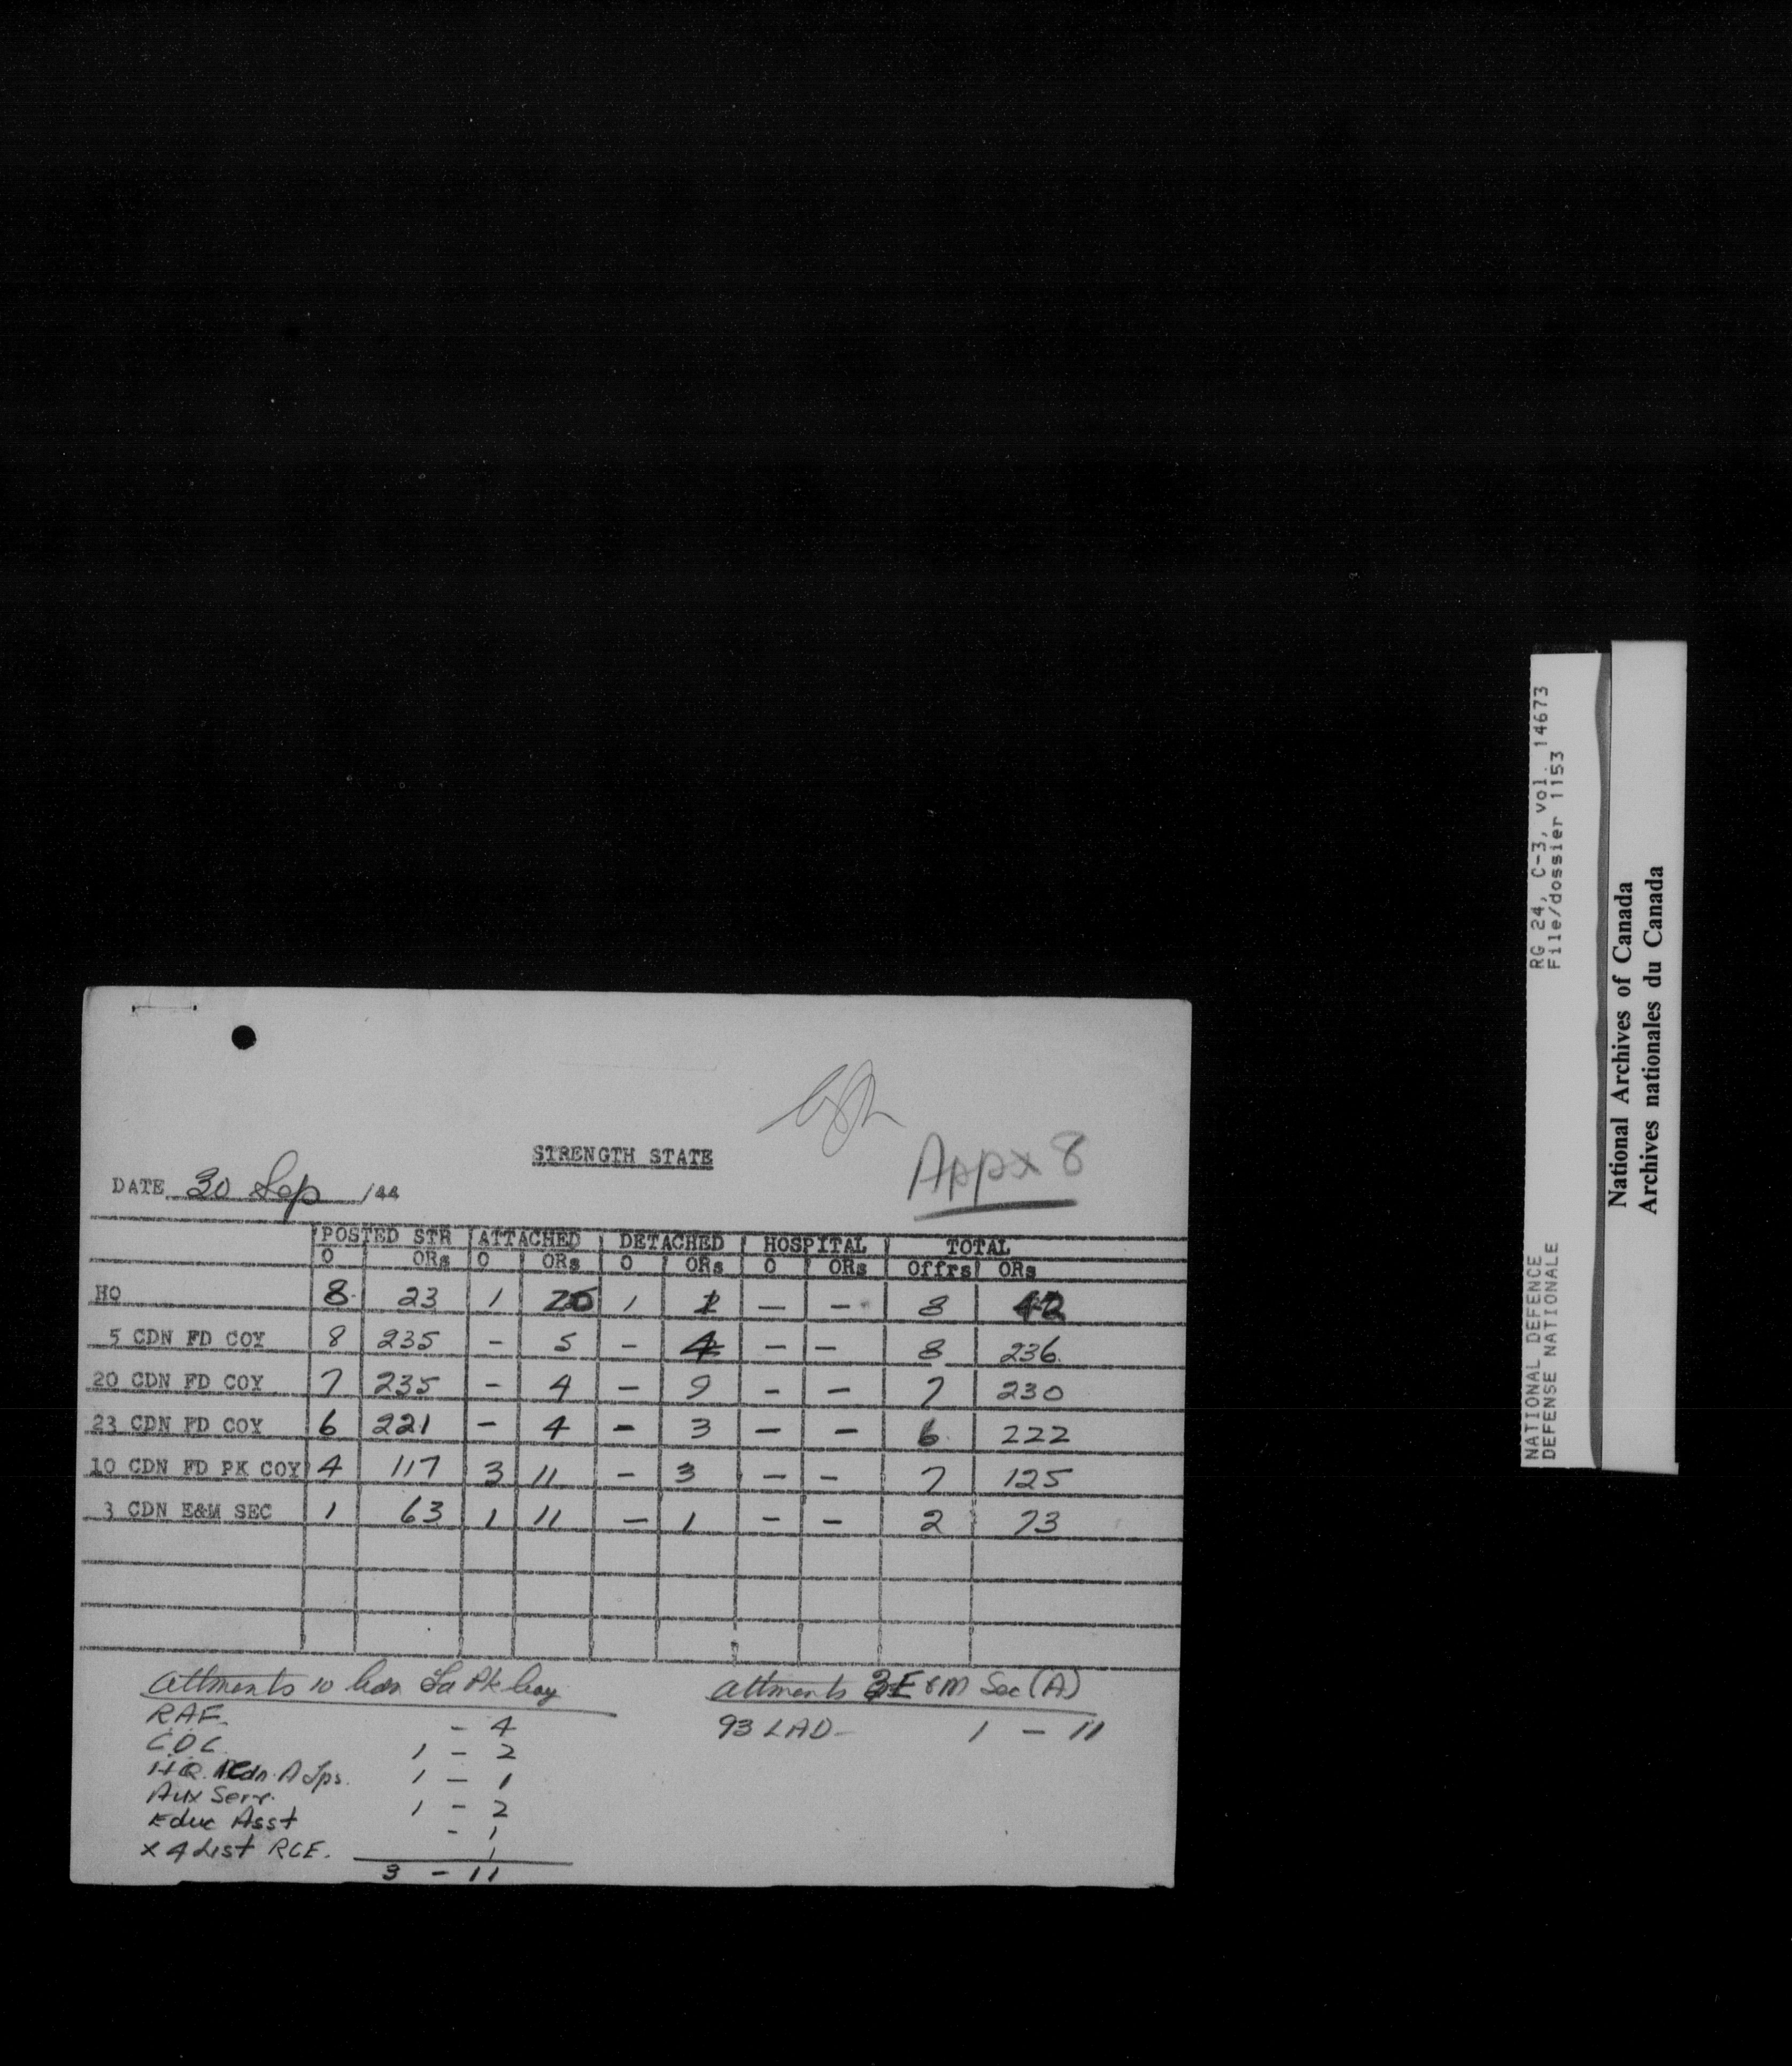 STRENGTH STATE
Appx 8
DATE 30 Sep /44
POSTED STR ATTACHED DETACHED HOSPITAL TOTAL
O ORs O ORs O ORs O ORs Offrs ORs
HQ 8 23 1 20 1 1 — — 8 42
5 CDN FD COY 8 235 - 5 - 4 — — 8 236
20 CDN FD COY 7 235 - 4 - 9 - - 7 230
23 CDN FD COY 6 221 - 4 - 3 — — 6 222
10 CDN FD PK COY 4 117 3 11 - 3 — - 7 125
3 CDN E&M SEC 1 63 1 11 — 1 - - 2 73
Attments 10 Cdn Fd Pk Coy
RAF - 4
C.D.C. 1 - 2
HQ Cdn A Tps. 1 - 1
Aux Serv. 1 - 2
Educ Asst - 1
X 4 List RCE. 1
3 - 11
Attments 3 E & M Sec (A)
93 LAD - 1 - 11
RG 24, C-3, vol. 14673
File/dossier 1153
NATIONAL DEFENCE
DEFENSE NATIONALE
National Archives of Canada
Archives nationales du Canada